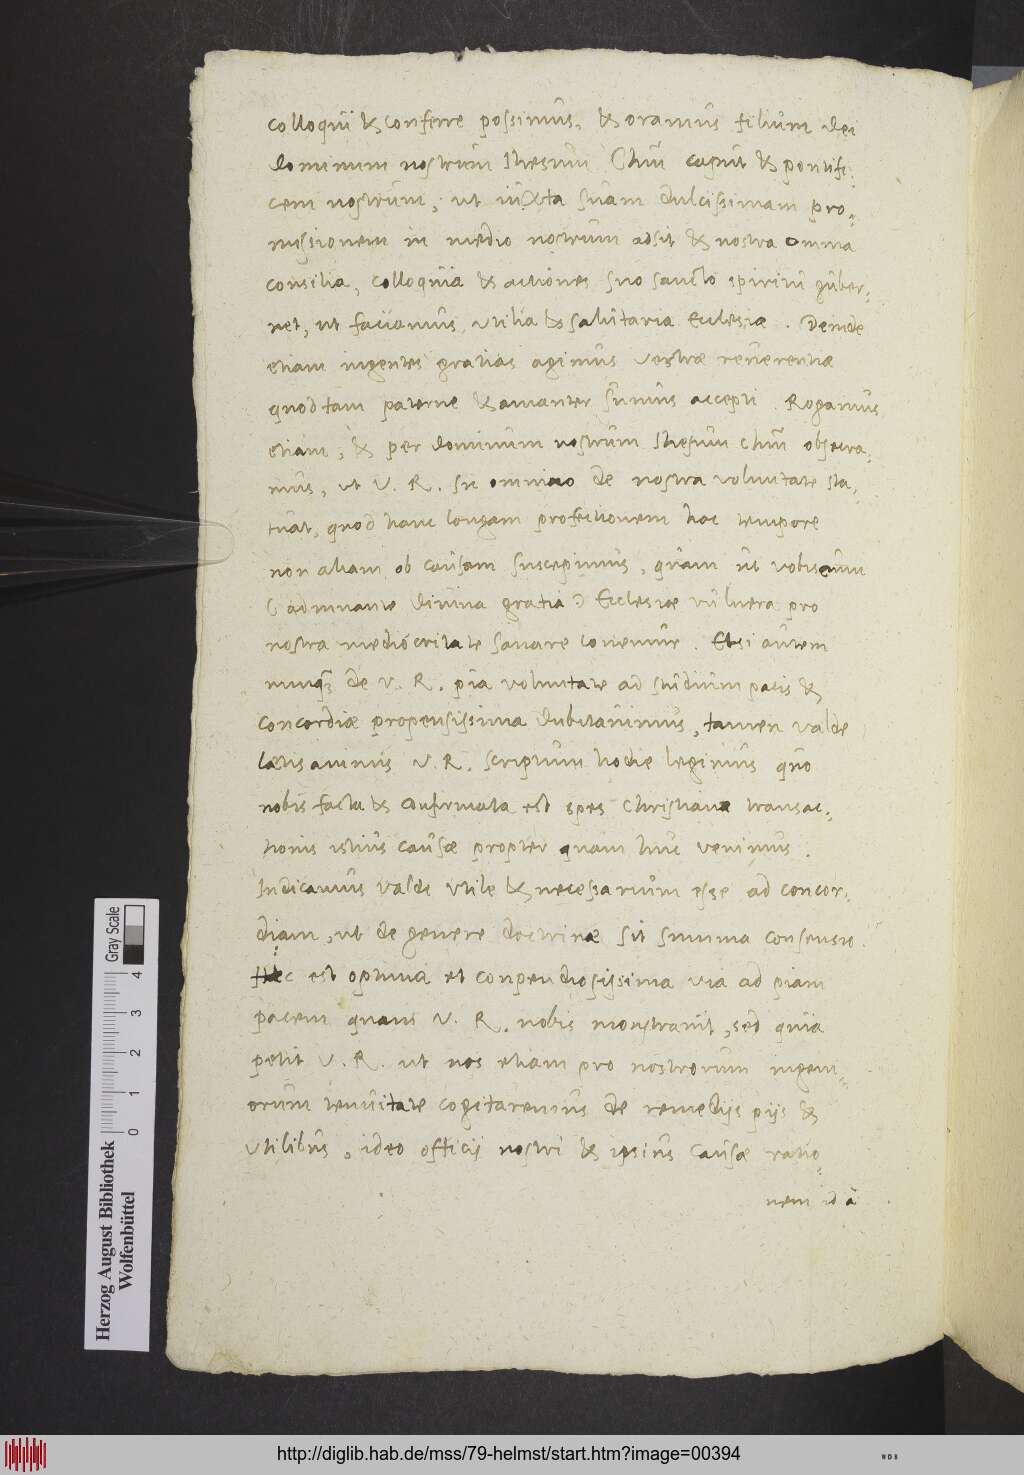 colloquii & conferre possimus, & oramus filium dei
dominum nostrum Ihesum Chm̄ caput & pontifi-
cem nostrum, ut iuxta suam dulcissimam pro-
missionem in medio nostrum adsit & nostra omnia
consilia, colloquia & actiones suo sancto spiritu guber-
net, ut faciamus utilia & salutaria Ecclesiæ. Deinde
etiam ingentes gratias agimus vestræ reverentiæ
quod tam paterne & amanter sumus accepti. Rogamus
etiam, & per dominum nostrum Ihesum Chm̄ obsecra-
mus, ut V. R. sic omnino de nostra voluntate sta-
tuat, quod hanc longam profectionem hoc tempore
non aliam ob causam suscepimus, quam ut vobiscum
(adiuvante divina gratia) Ecclesiæ vulnera pro
nostra mediocritate sanare conemur. Etsi autem
nunq̃ de V. R. pia voluntate ad studium pacis &
concordiæ propensissima dubitavimus, tamen valde
lætis animis V. R. scriptum hodie legimus quo
nobis facta & confirmata est spes Christianæ transac-
tionis istius causæ propter quam huc venimus.
Iudicamus valde utile & necessarium esse ad concor-
diam, ut de genere doctrinæ sit summa consensio.
Hæc est optima et conpendiosissima via ad piam
pacem quam V. R. nobis monstravit, sed quia
petit V. R. ut nos etiam pro nostrorum ingeni-
orum tenuitate cogitaremus de remedijs pijs &
utilibus, ideo officij nostri & ipsius causæ ratio-
nem id a
Herzog August Bibliothek
Wolfenbüttel
0 1 2 3 4
Gray Scale
http://diglib.hab.de/mss/79-helmst/start.htm?image=00394
WDB